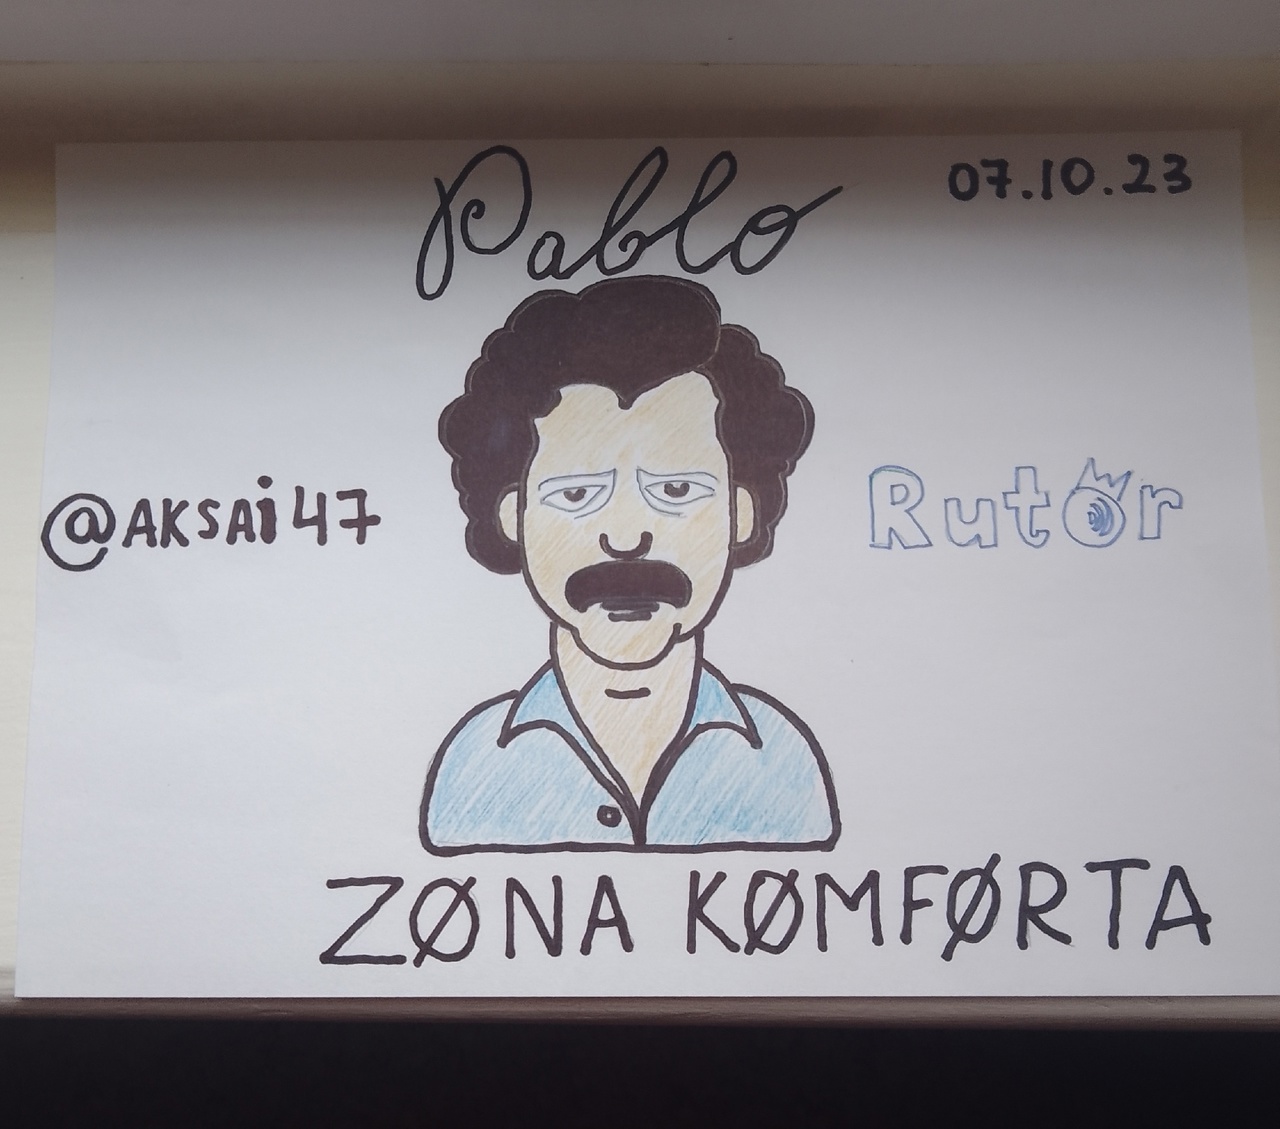 Pablo
07.10.23
@AKSAi47
Rutor
ZØNA KØMFØRTA